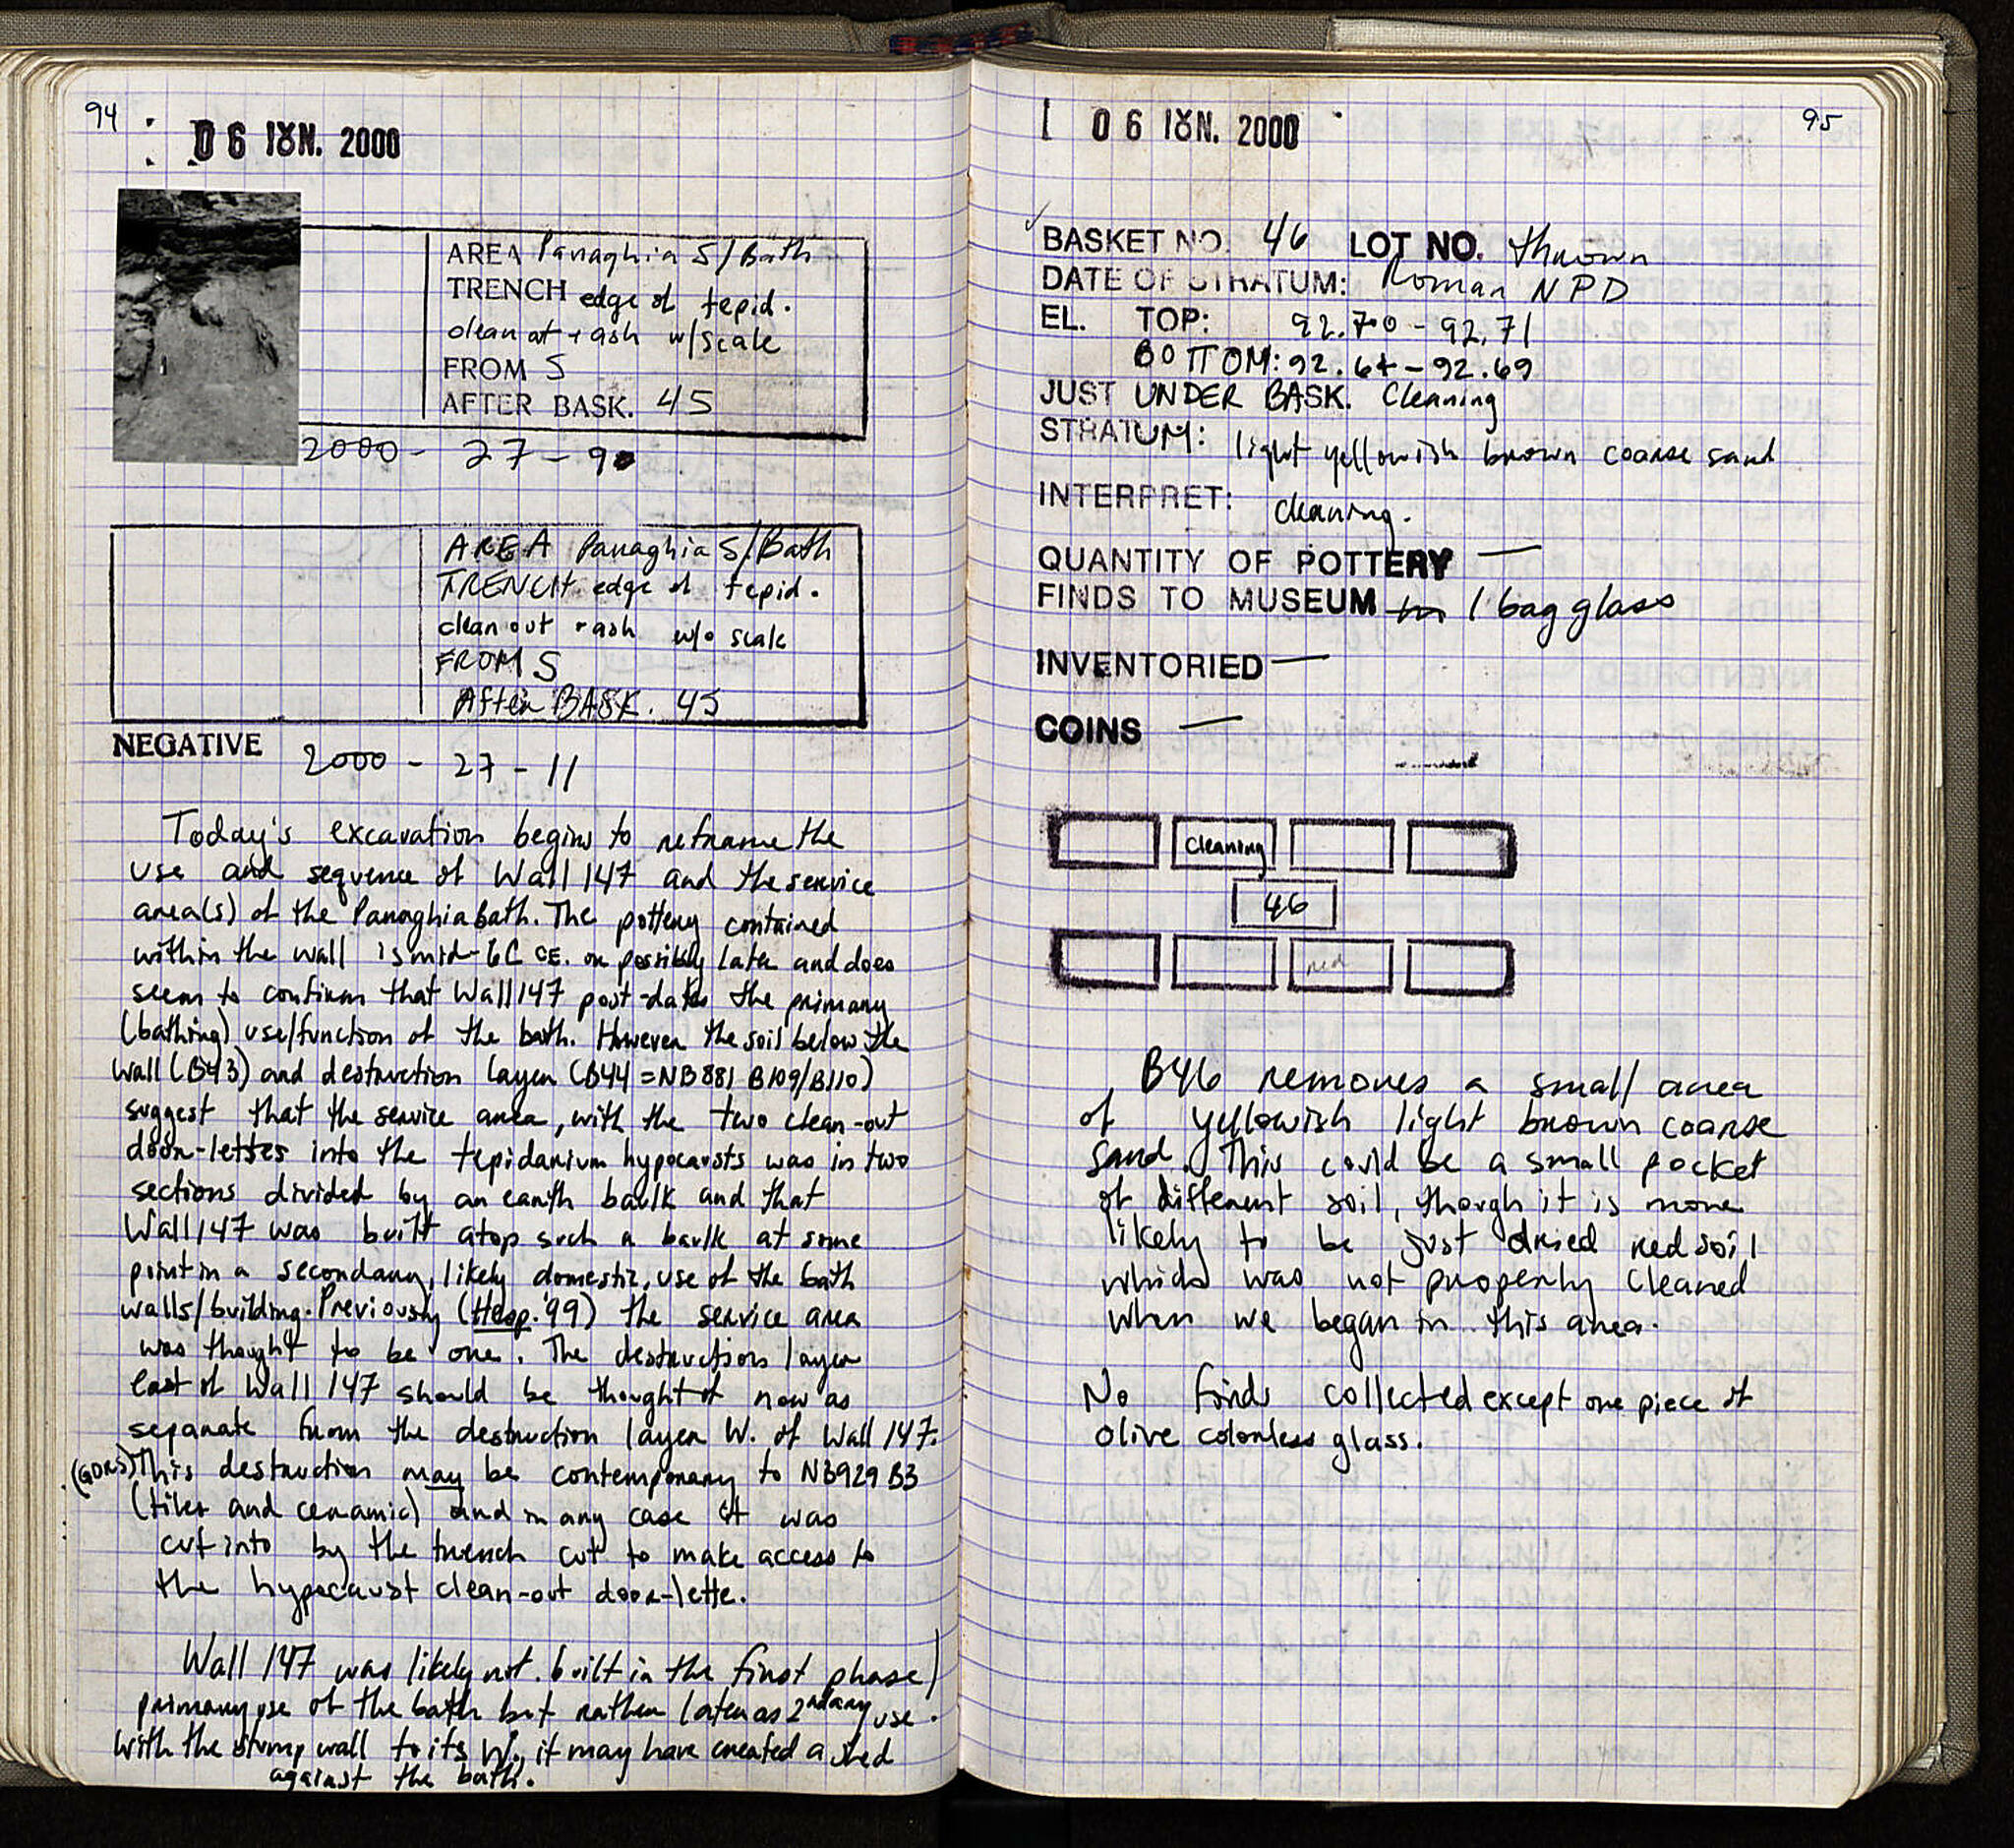 94
06 IȣN. 2000
AREA Panaghia S/Bath
TRENCH edge of tepid.
clean out + ash w/scale
FROM S
AFTER BASK. 45
2000 - 27 - 9
AREA Panaghia S/Bath
TRENCH edge of tepid.
clean out + ash w/o scale
FROM S
After BASK. 45
NEGATIVE 2000 - 27 - 11
Today's excavation begins to reframe the
use and sequence of Wall 147 and the service
area(s) of the Panaghia bath. The pottery contained
within the wall is mid-6C CE. or possibly later and does
seem to confirm that Wall 147 post-dates the primary
(bathing) use/function of the bath. However the soil below the
wall (B43) and destruction layer (B44 = NB881 B109/B110)
suggest that the service area, with the two clean-out
door-lettes into the tepidarium hypocausts was in two
sections divided by an earth baulk and that
Wall 147 was built atop such a baulk at some
point in a secondary, likely domestic, use of the bath
walls/building. Previously (Hesp. '99) the service area
was thought to be one. The destruction layer
East of Wall 147 should be thought of now as
separate from the destruction layer W. of Wall 147.
(GDRS) This destruction may be contemporary to NB929 B3
(tiles and ceramic) and in any case it was
cut into by the trench cut to make access to
the hypocaust clean-out door-lette.
Wall 147 was likely not built in the first phase/
primary use of the bath but rather later as 2ndary use.
With the stump wall to its W., it may have created a shed
against the bath.
95
06 IȣN. 2000
BASKET NO. 46 LOT NO. thrown
DATE OF STRATUM: Roman NPD
EL. TOP: 92.70 - 92.71
BOTTOM: 92.64 - 92.69
JUST UNDER BASK. Cleaning
STRATUM: light yellowish brown coarse sand
INTERPRET: cleaning.
QUANTITY OF POTTERY —
FINDS TO MUSEUM 1 bag glass
INVENTORIED —
COINS —
Cleaning
46
red
B46 removes a small area
of yellowish light brown coarse
sand. This could be a small pocket
of different soil, though it is more
likely to be just dried red soil
which was not properly cleaned
when we began in this area.
No finds collected except one piece of
olive colorless glass.